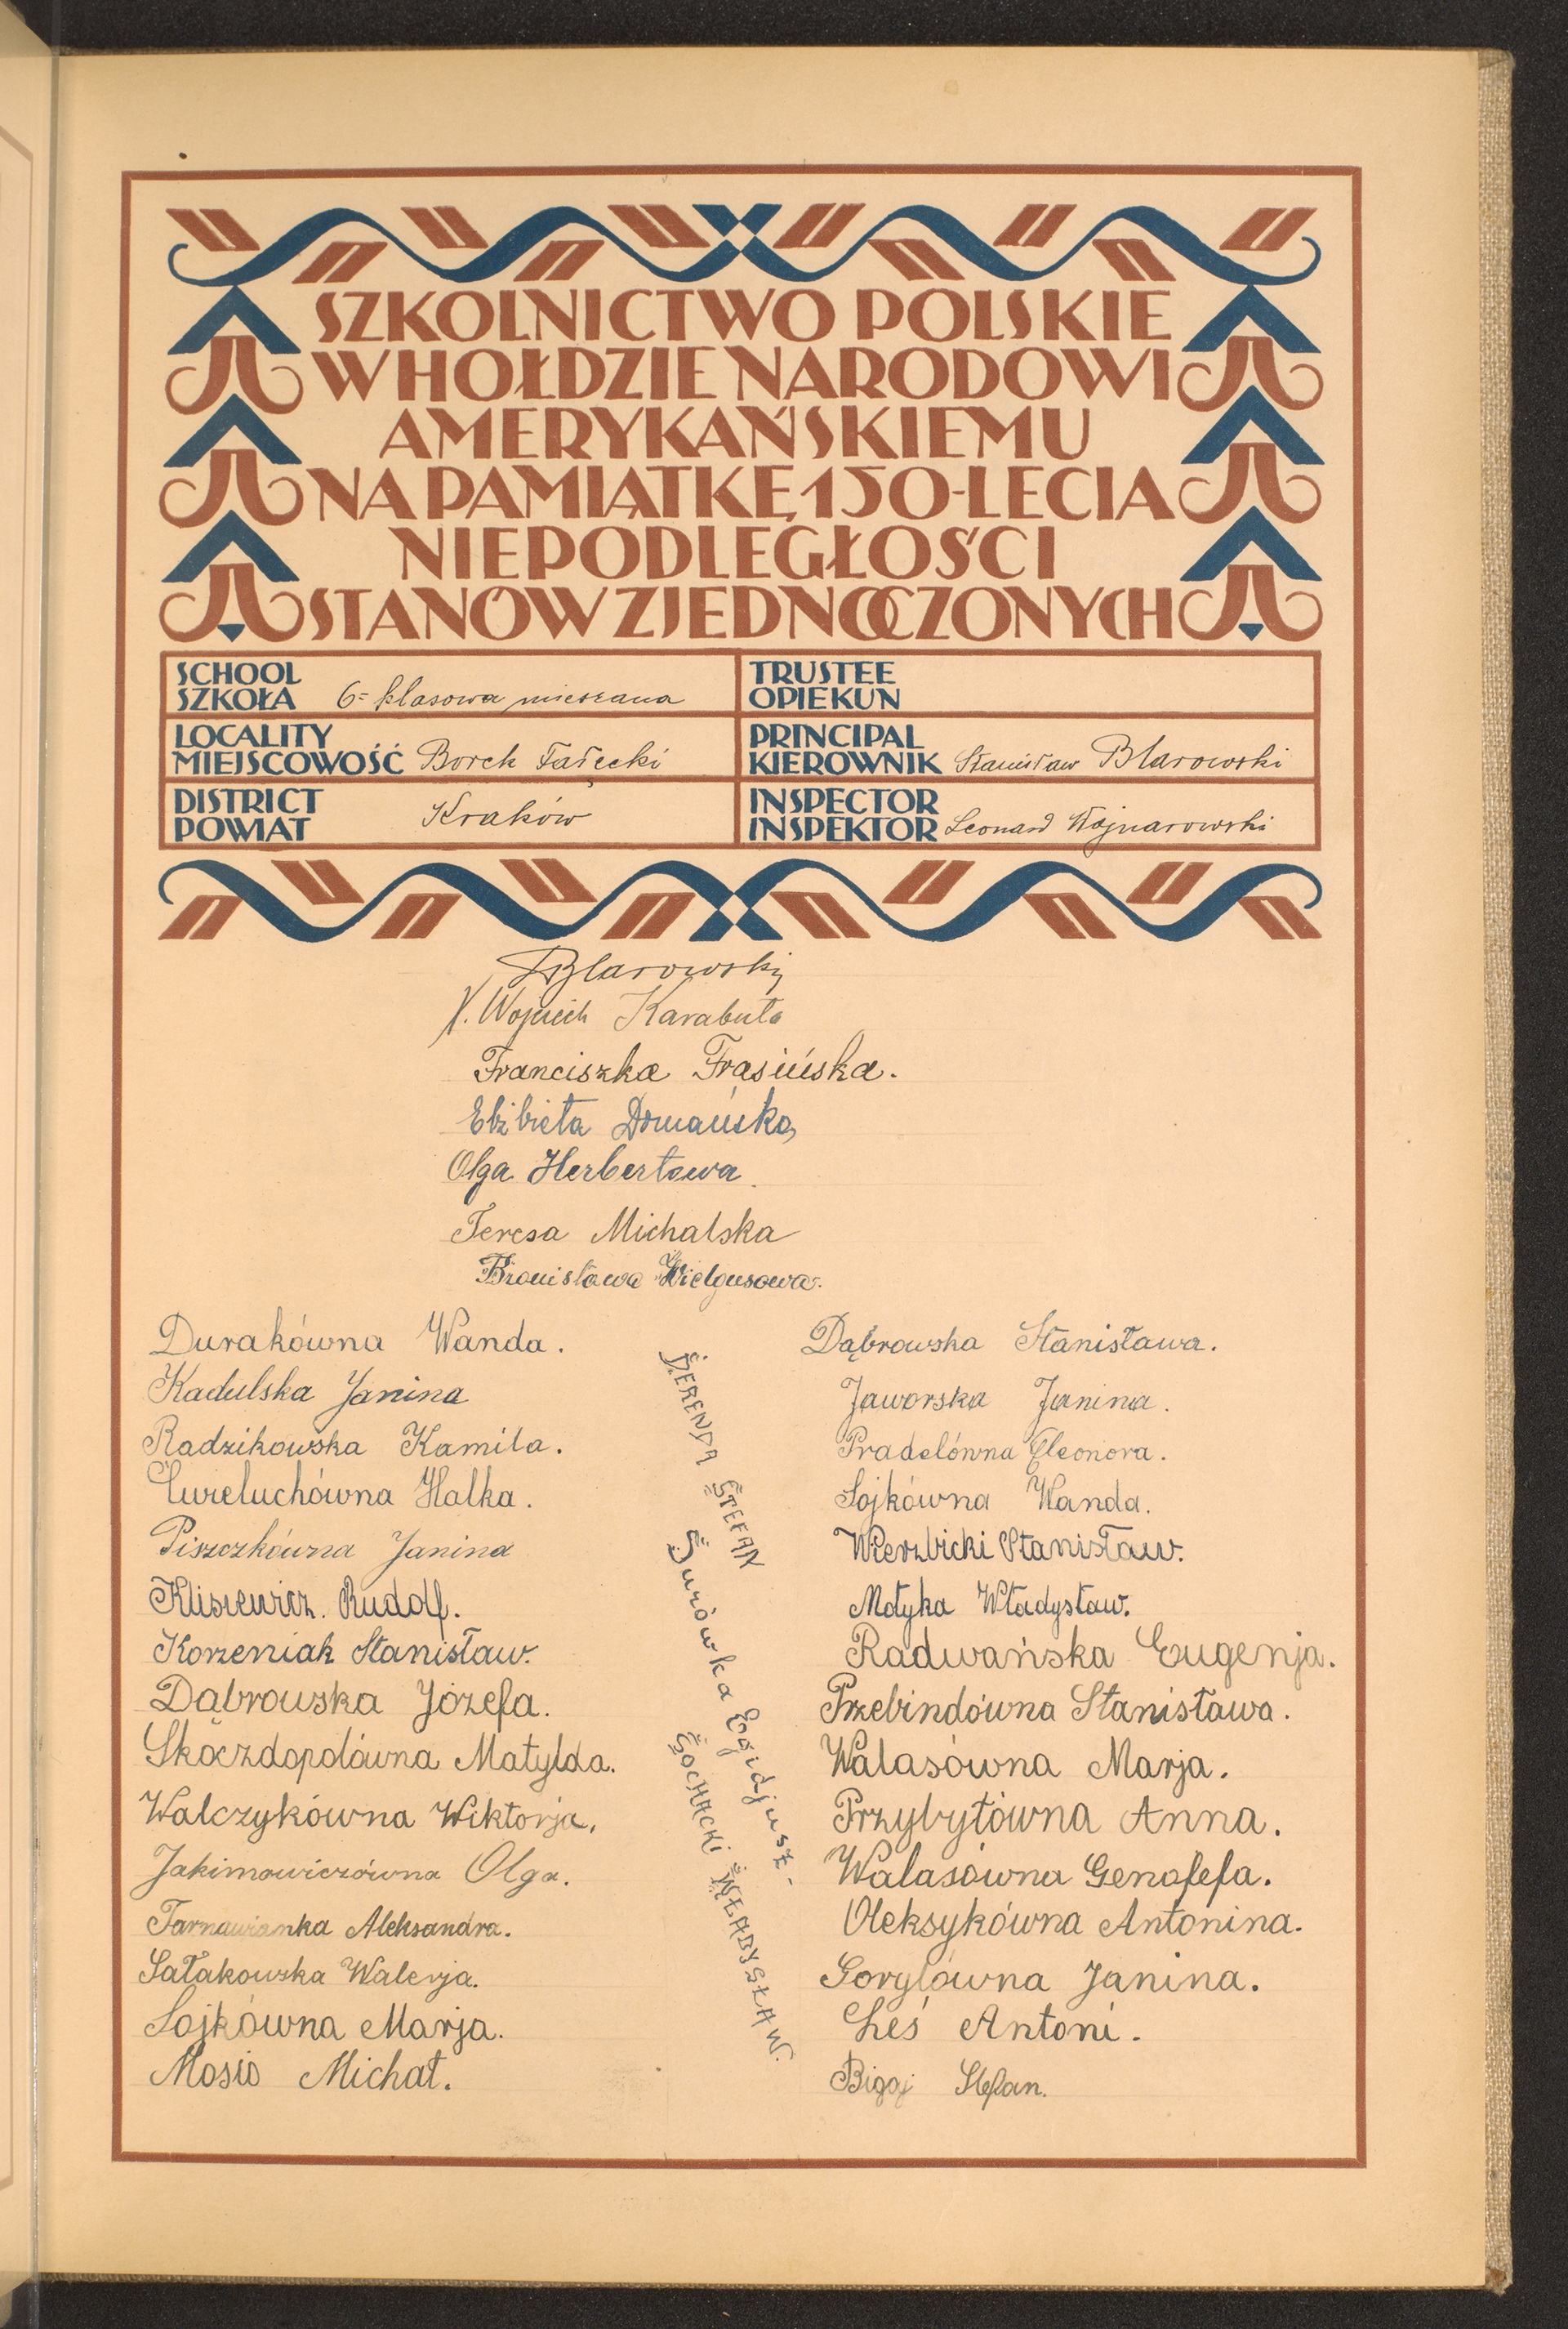 SZKOLNICTWO POLSKIE
W HOŁDZIE NARODOWI
AMERYKAŃSKIEMU
NA PAMIĄTKĘ 150-LECIA
NIEPODLEGŁOŚCI
STANÓW ZJEDNOCZONYCH
SCHOOL
SZKOŁA 6-klasowa mieszana
TRUSTEE
OPIEKUN
LOCALITY
MIEJSCOWOŚĆ Borek Fałęcki
PRINCIPAL
KIEROWNIK Stanisław Blarowski
DISTRICT
POWIAT Kraków
INSPECTOR
INSPEKTOR Leonard Wojnarowski
Blarowski
X. Wojciech Karabuła
Franciszka Frąsińska.
Elżbieta Domańska
Olga Herbertowa.
Teresa Michalska
Bronisława Wielgusowa.
Durakówna Wanda.
Kadulska Janina
Radzikowska Kamila.
Ćwieluchówna Halka.
Piszczkówna Janina
Klisiewicz. Rudolf.
Korzeniak Stanisław.
Dąbrowska Józefa.
Skoczdopolówna Matylda.
Walczykówna Wiktorja.
Jakimowiczówna Olga.
Tarnawianka Aleksandra.
Sałakowska Walerja.
Sojkówna Marja.
Mosio Michał.
ŻERENDA STEFAN
Żurówka Egidjusz.
SOCHACKI WŁADYSŁAW.
Dąbrowska Stanisława.
Jaworska Janina.
Pradelówna Eleonora.
Sojkówna Wanda.
Wierzbicki Stanisław.
Motyka Władysław.
Radwańska Eugenja.
Przebindówna Stanisława.
Walasówna Marja.
Przybyłówna Anna.
Walasówna Genofefa.
Oleksykówna Antonina.
Gorylówna Janina.
Leś Antoni.
Bigaj Stefan.